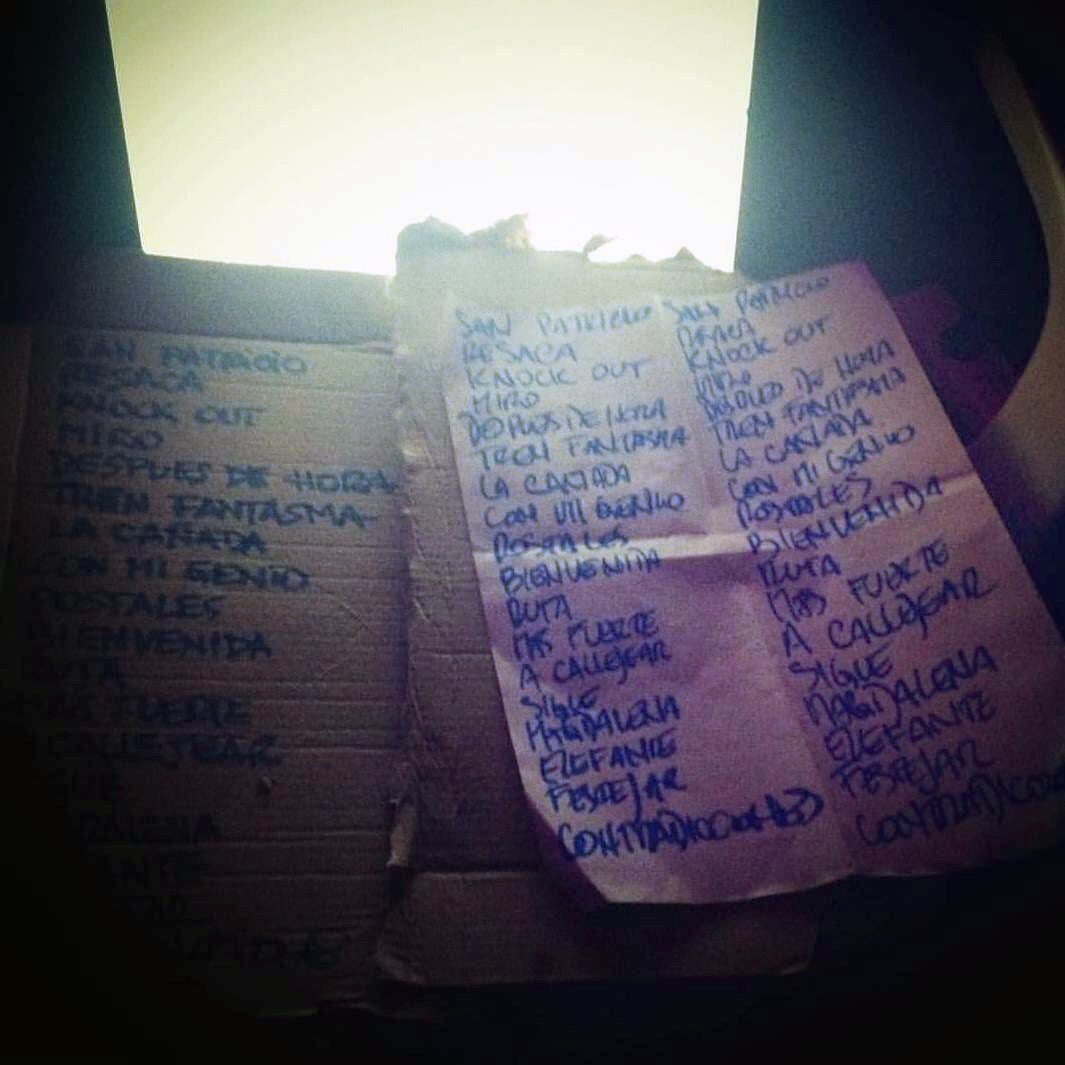 SAN PATRICIO
RESACA
KNOCK OUT
MIRO
DESPUES DE HORA
TREN FANTASMA
LA CAÑADA
CON MI GENIO
POSTALES
BIENVENIDA
RUTA
MAS FUERTE
CALLEJEAR
SAN PATRICIO
RESACA
KNOCK OUT
MIRO
DESPUES DE HORA
TREN FANTASMA
LA CAÑADA
CON MI GENIO
POSTALES
BIENVENIDA
RUTA
MAS FUERTE
A CALLEJEAR
SIGUE
MAGDALENA
ELEFANTE
FESTEJAR
CONTRADICCIONES
SAN PATRICIO
RESACA
KNOCK OUT
MIRO
DESPUES DE HORA
TREN FANTASMA
LA CAÑADA
CON MI GENIO
POSTALES
BIENVENIDA
RUTA
MAS FUERTE
A CALLEJEAR
SIGUE
MAGDALENA
ELEFANTE
FESTEJAR